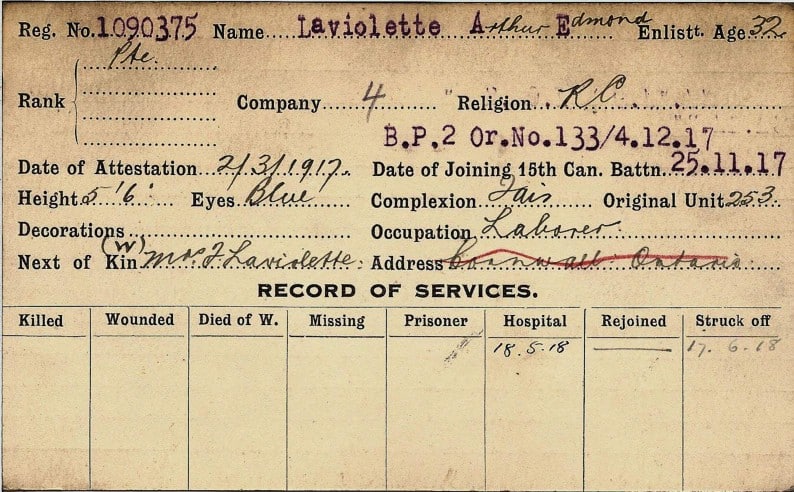 Reg. No. 1090375 Name Laviolette Arthur Edmond Enlistt. Age 32
Rank Pte. Company 4 Religion R C
B.P.2 Or.No.133/4.12.17
Date of Attestation 2/3/1917. Date of Joining 15th Can. Battn. 25.11.17
Height 5'6" Eyes Blue Complexion Fair Original Unit 253
Decorations Occupation Laborer.
Next of Kin (W) Mrs J. Laviolette. Address Cornwall Ontario
RECORD OF SERVICES.
Killed Wounded Died of W. Missing Prisoner Hospital Rejoined Struck off
18.5.18 17.6.18